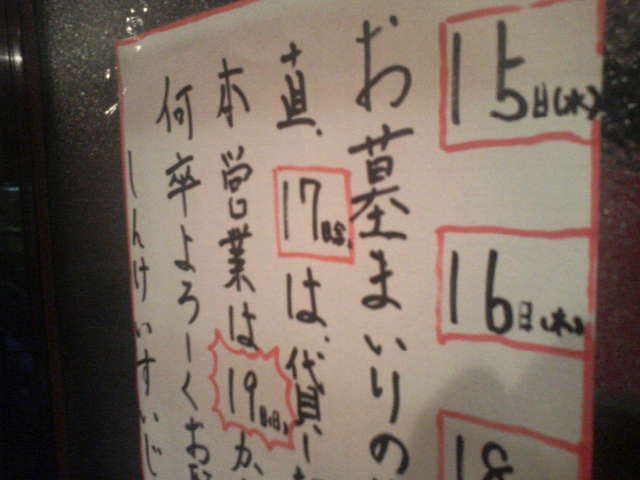 15日(水) 16日(木) 18
お墓まいりの
直、17日(金)は、貸し
本営業は19日(日)か
何卒よろしくお
しんけいすいじ